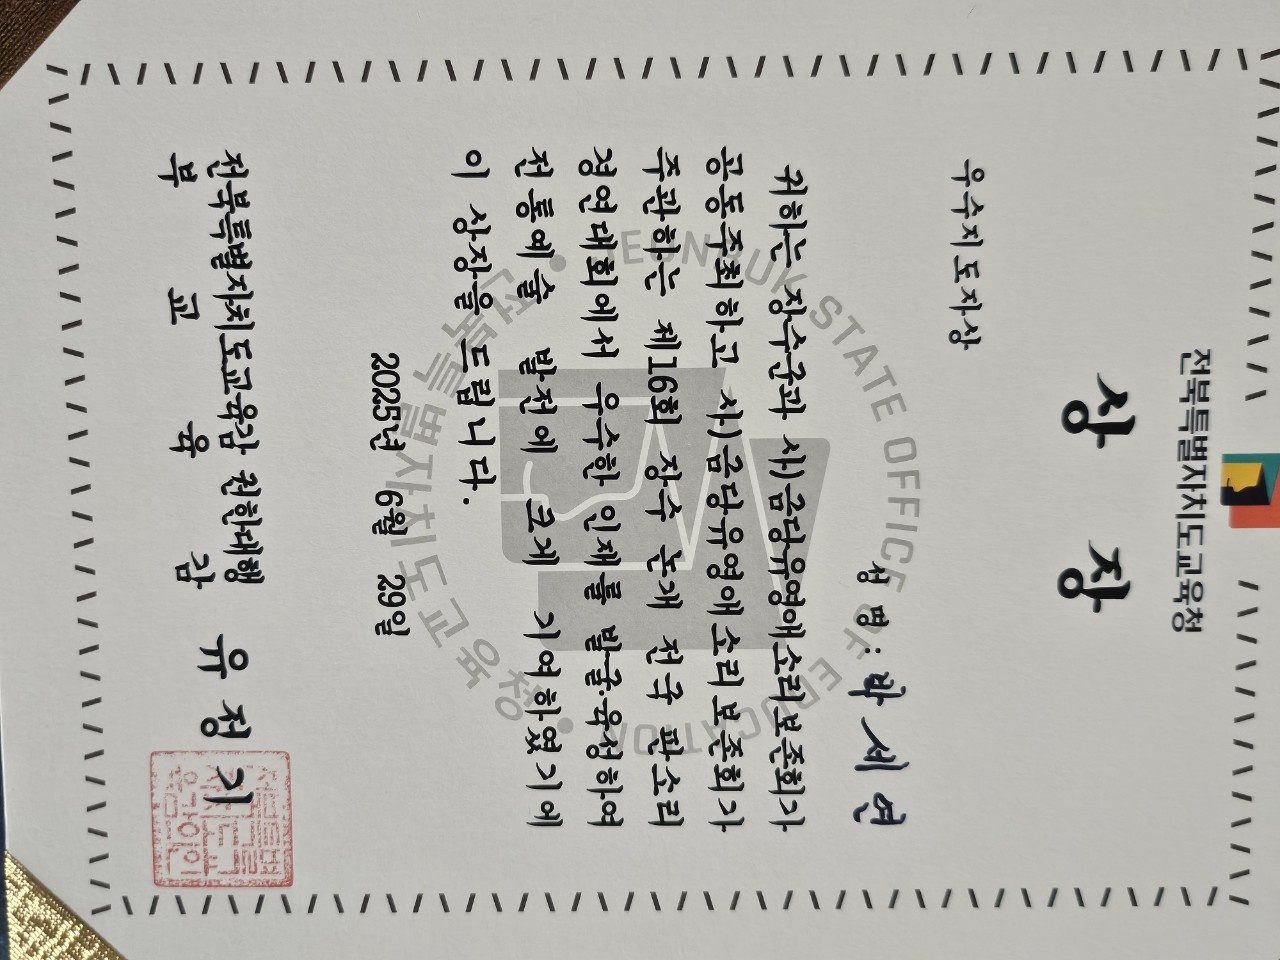 전북특별자치도교육청
상 장
우수지도자상
성 명 : 박 세 연
귀하는 장수군과 사)금당유영애소리보존회가
공동주최하고 사)금당유영애소리보존회가
주관하는 제16회 장수 논개 전국 판소리
경연대회에서 우수한 인재를 발굴·육성하여
전통예술 발전에 크게 기여하였기에
이 상장을 드립니다.
2025년 6월 29일
전북특별자치도교육감 권한대행
부 교 육 감
유 정 기
JEONBUK STATE OFFICE OF EDUCATION
전북특별자치도교육청